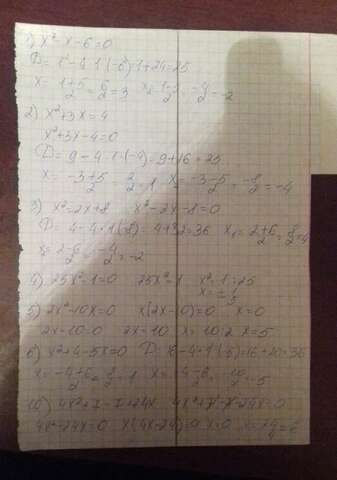 1) x²-x-6=0
D=1²-4·1·(-6)=1+24=25
x=1+5/2=6/2=3 x₂=1-5/2=-4/2=-2
2) x²+3x=4
x²+3x-4=0
D=9-4·1·(-4)=9+16=25
x=-3+5/2=2/2=1 x=-3-5/2=-8/2=-4
3) x²=2x+8 x²-2x-8=0
D=4-4·1·(-8)=4+32=36 x₁=2+6/2=8/2=4
x=2-6/2=-4/2=-2
4) 25x²-1=0 25x²=1 x²=1:25
x=±1/5
5) 2x²-10x=0 x(2x-10)=0 x=0
2x-10=0 2x=10 x=10:2 x=5
6) x²+4-5x=0 D=16-4·1·(-5)=16+20=36
x=-4+6/2=2/2=1 x=-4-6/2=-10/2=-5
4x²-24x=0 x(4x-24)=0 x=0